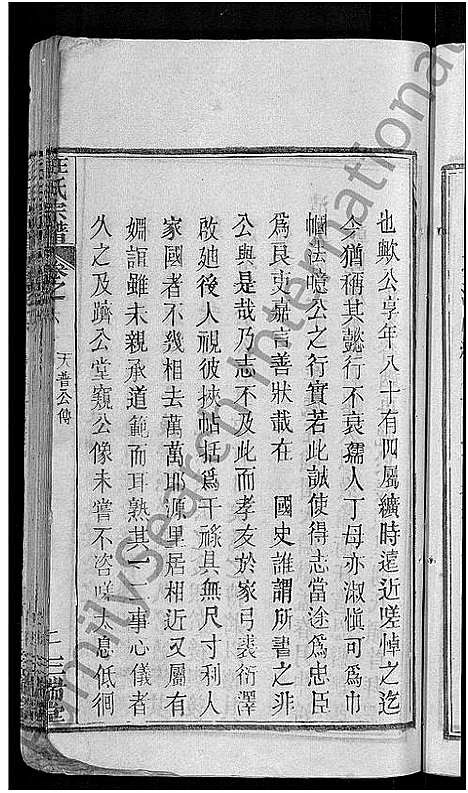 也歟公享年八十有四屬纊時遠近嗟悼之迄
今猶稱其懿行不衰孺人丁母亦淑愼可爲巾
幗法噫公之行實若此誠使得志當途爲忠臣
爲良吏嘉言善狀載在 國史誰謂所書之非
公與是哉乃志不及此而孝友於家弓裘衍澤
啟迤後人視彼挾帖括爲干祿具無尺寸利人
家國者不幾相去萬萬耶源里居相近又屬有
婣誼雖未親承道範而耳熟其一二事心儀者
久之及躋公堂窺公像未嘗不咨嗟太息低徊
汪氏宗譜 卷之 天普公傳 三瑞堂
FamilySearch International